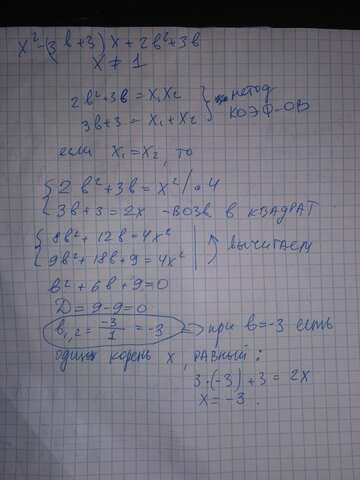 x² - (3b+3)x + 2b² + 3b
x ≠ 1
2b² + 3b = x₁x₂ } метод
3b + 3 = x₁ + x₂ } КОЭФ-ОВ
если x₁ = x₂, то
{ 2b² + 3b = x² / • 4
{ 3b + 3 = 2x - ВОЗВ В КВАДРАТ
{ 8b² + 12b = 4x² | ВЫЧИТАЕМ
{ 9b² + 18b + 9 = 4x² |
b² + 6b + 9 = 0
D = 9 - 9 = 0
b₁,₂ = -3/1 = -3 => при b = -3 есть
один корень x, РАВНЫЙ:
3·(-3) + 3 = 2x
x = -3.